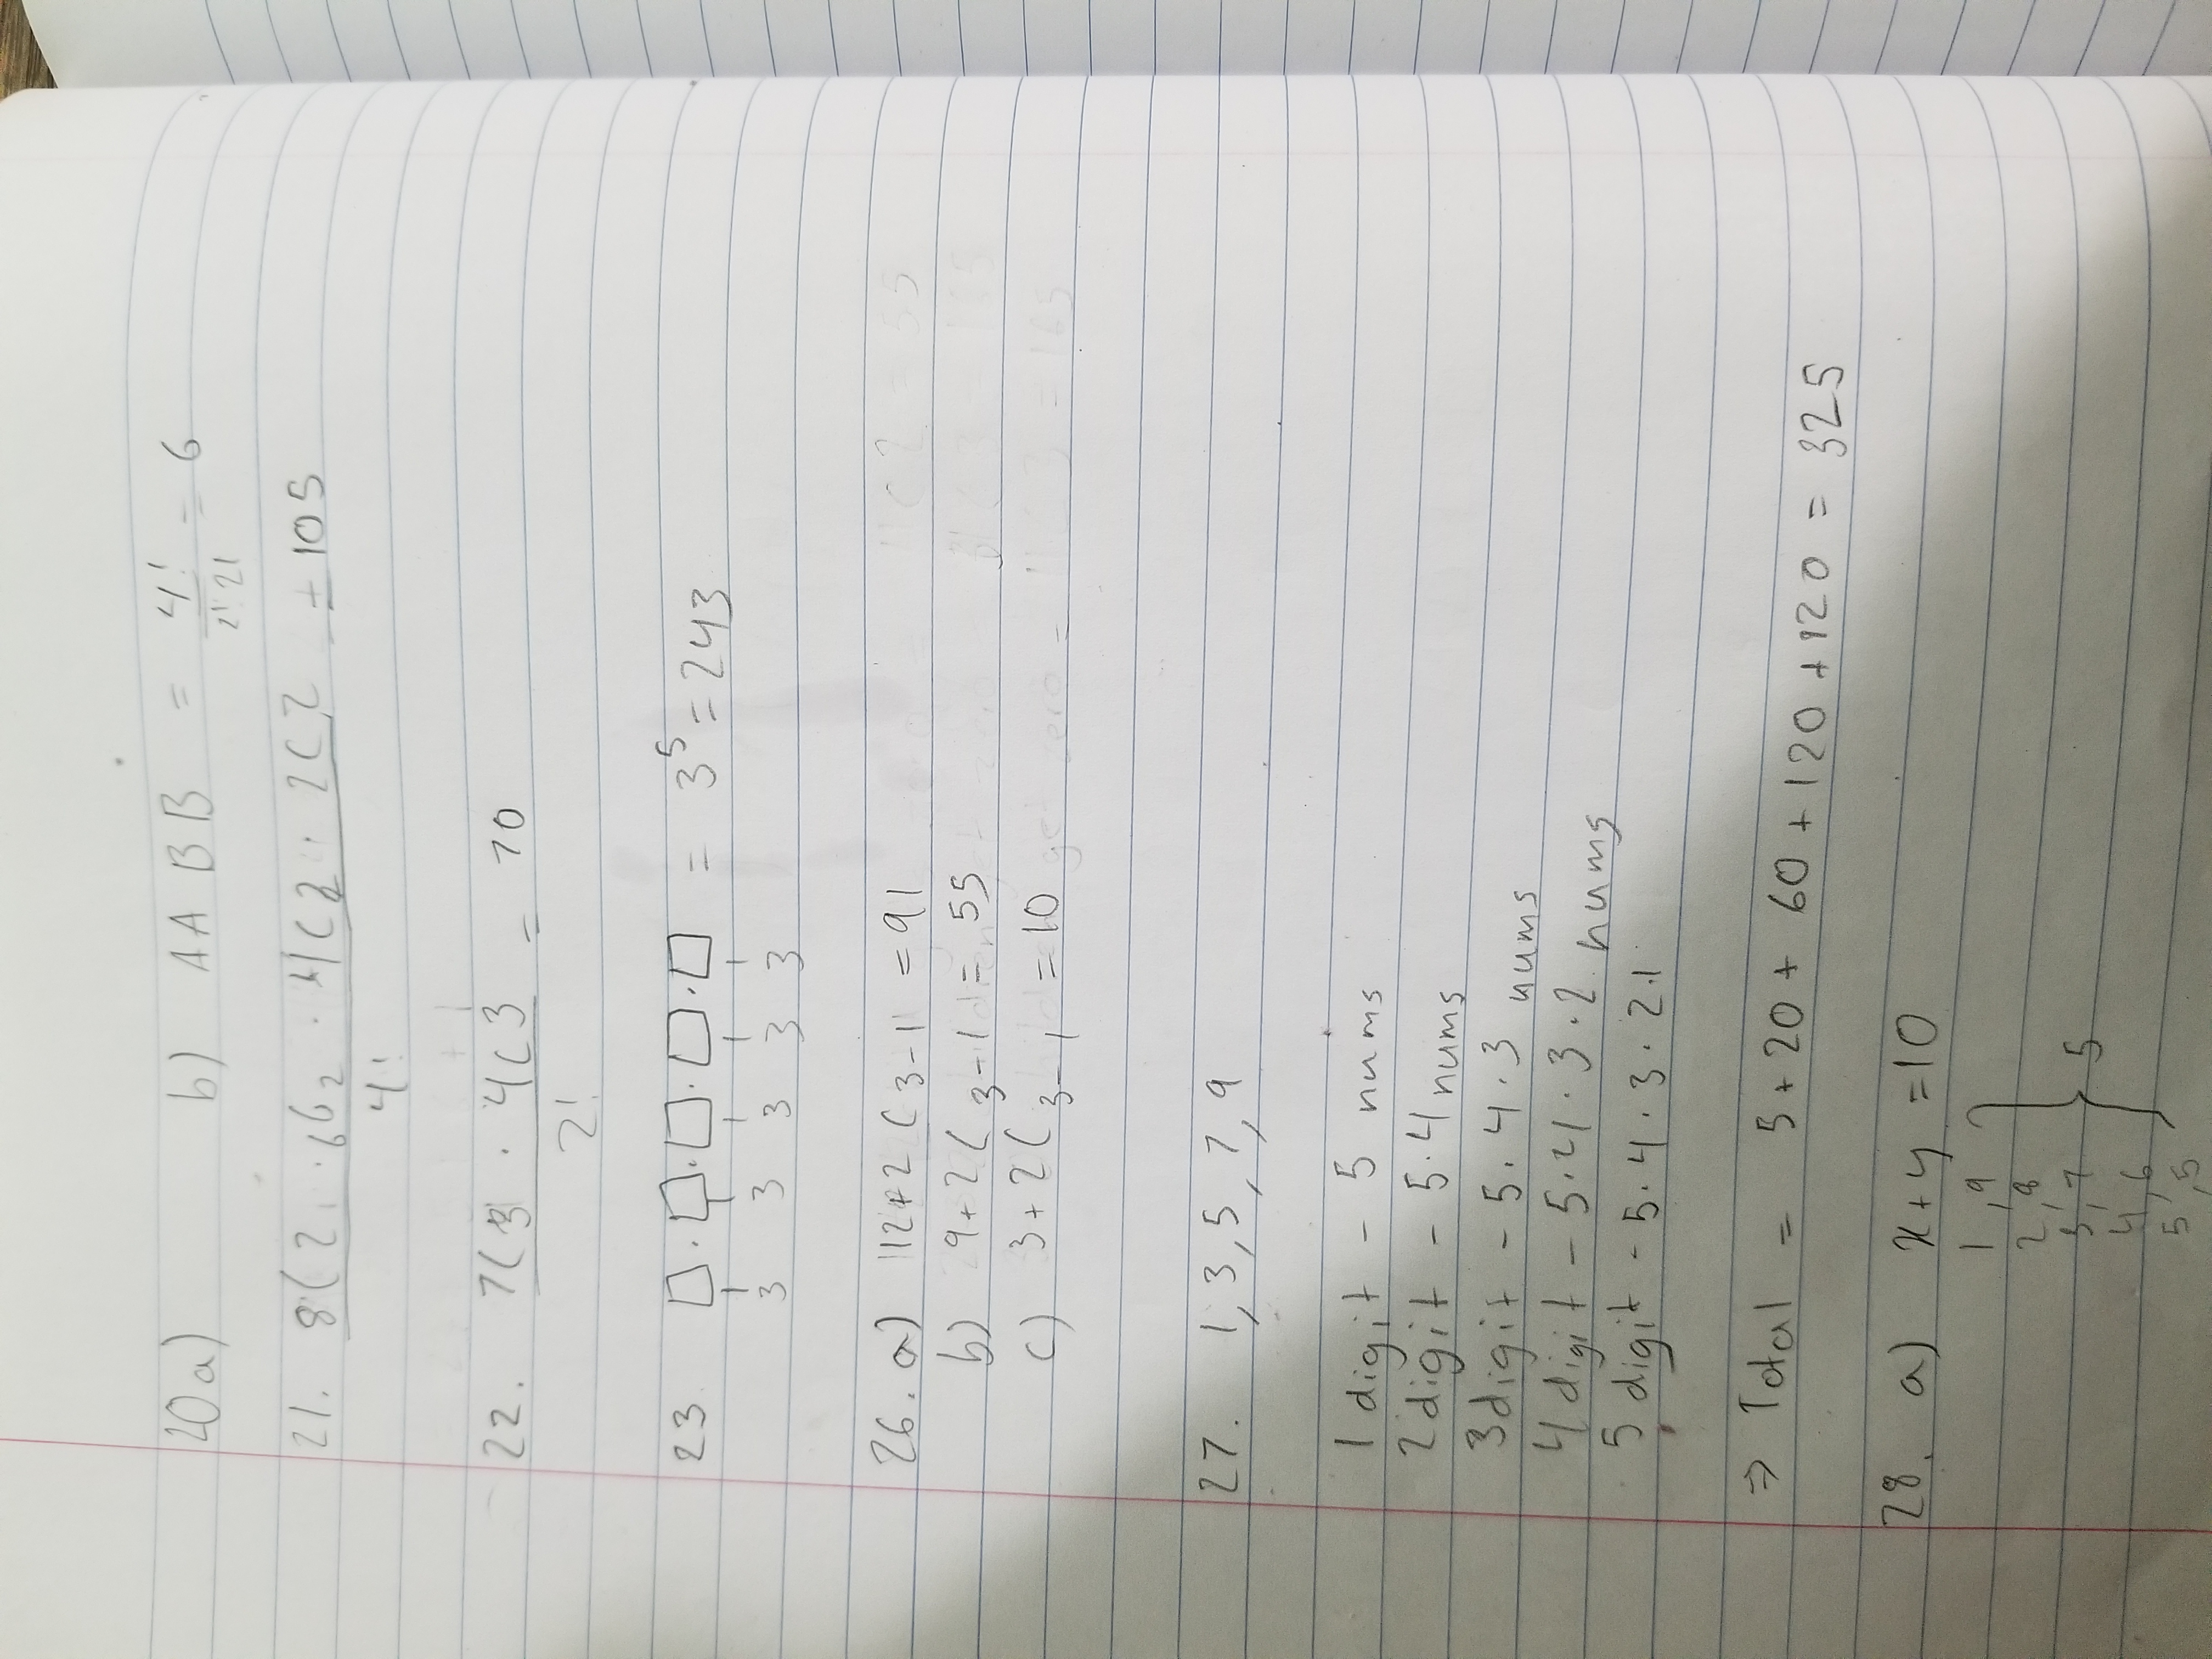 20 a) b) A A B B = 4! / 2! 2! = 6
21. 8C2 · 6C2 · 4C2 · 2C2 / 4! = 105
22. 7C3 · 4C3 / 2! = 70
23. □ · □ · □ · □ · □ = 3^5 = 243
3 3 3 3 3
26. a) 12+2 C 3-1 = 91
b) 9+2 C 3-1 = 55
c) 3+2 C 3-1 = 10
27. 1, 3, 5, 7, 9
1 digit - 5 nums
2 digit - 5·4 nums
3 digit - 5·4·3 nums
4 digit - 5·4·3·2 nums
5 digit - 5·4·3·2·1
⇒ Total = 5 + 20 + 60 + 120 + 120 = 325
28. a) x + y = 10
1, 9
2, 8
3, 7 } 5
4, 6
5, 5